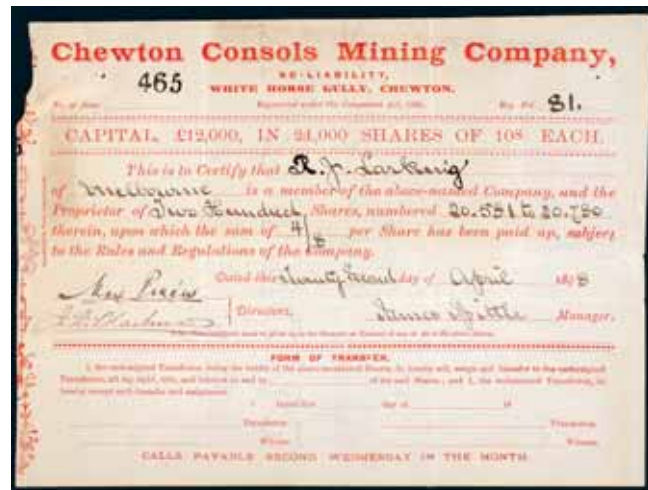 Chewton Consols Mining Company,
NO-LIABILITY,
465 WHITE HORSE GULLY, CHEWTON.
No. of Registered under the Companies Act, Reg. Fol. 81.
CAPITAL, £12,000, IN 24,000 SHARES OF 10S EACH.
This is to Certify that R. J. Larking
of Melbourne is a member of the above-named Company, and the
Proprietor of Two Hundred Shares, numbered 20.581 to 20.780
therein, upon which the sum of 4/8 per Share has been paid up, subject
to the Rules and Regulations of the Company.
Dated this twenty second day of April 1898
Directors, James Manager.
FORM OF TRANSFER.
I, the undersigned Transferror, being the holder of the above-mentioned Shares, do hereby sell, assign and transfer to the undersigned
Transferree, all my right, title, and interest in and to my of the said Shares; and I, the undersigned Transferree, do
hereby accept such transfer and assignment.
day of
Transferror Transferree
Witness Witness
CALLS PAYABLE SECOND WEDNESDAY IN THE MONTH.